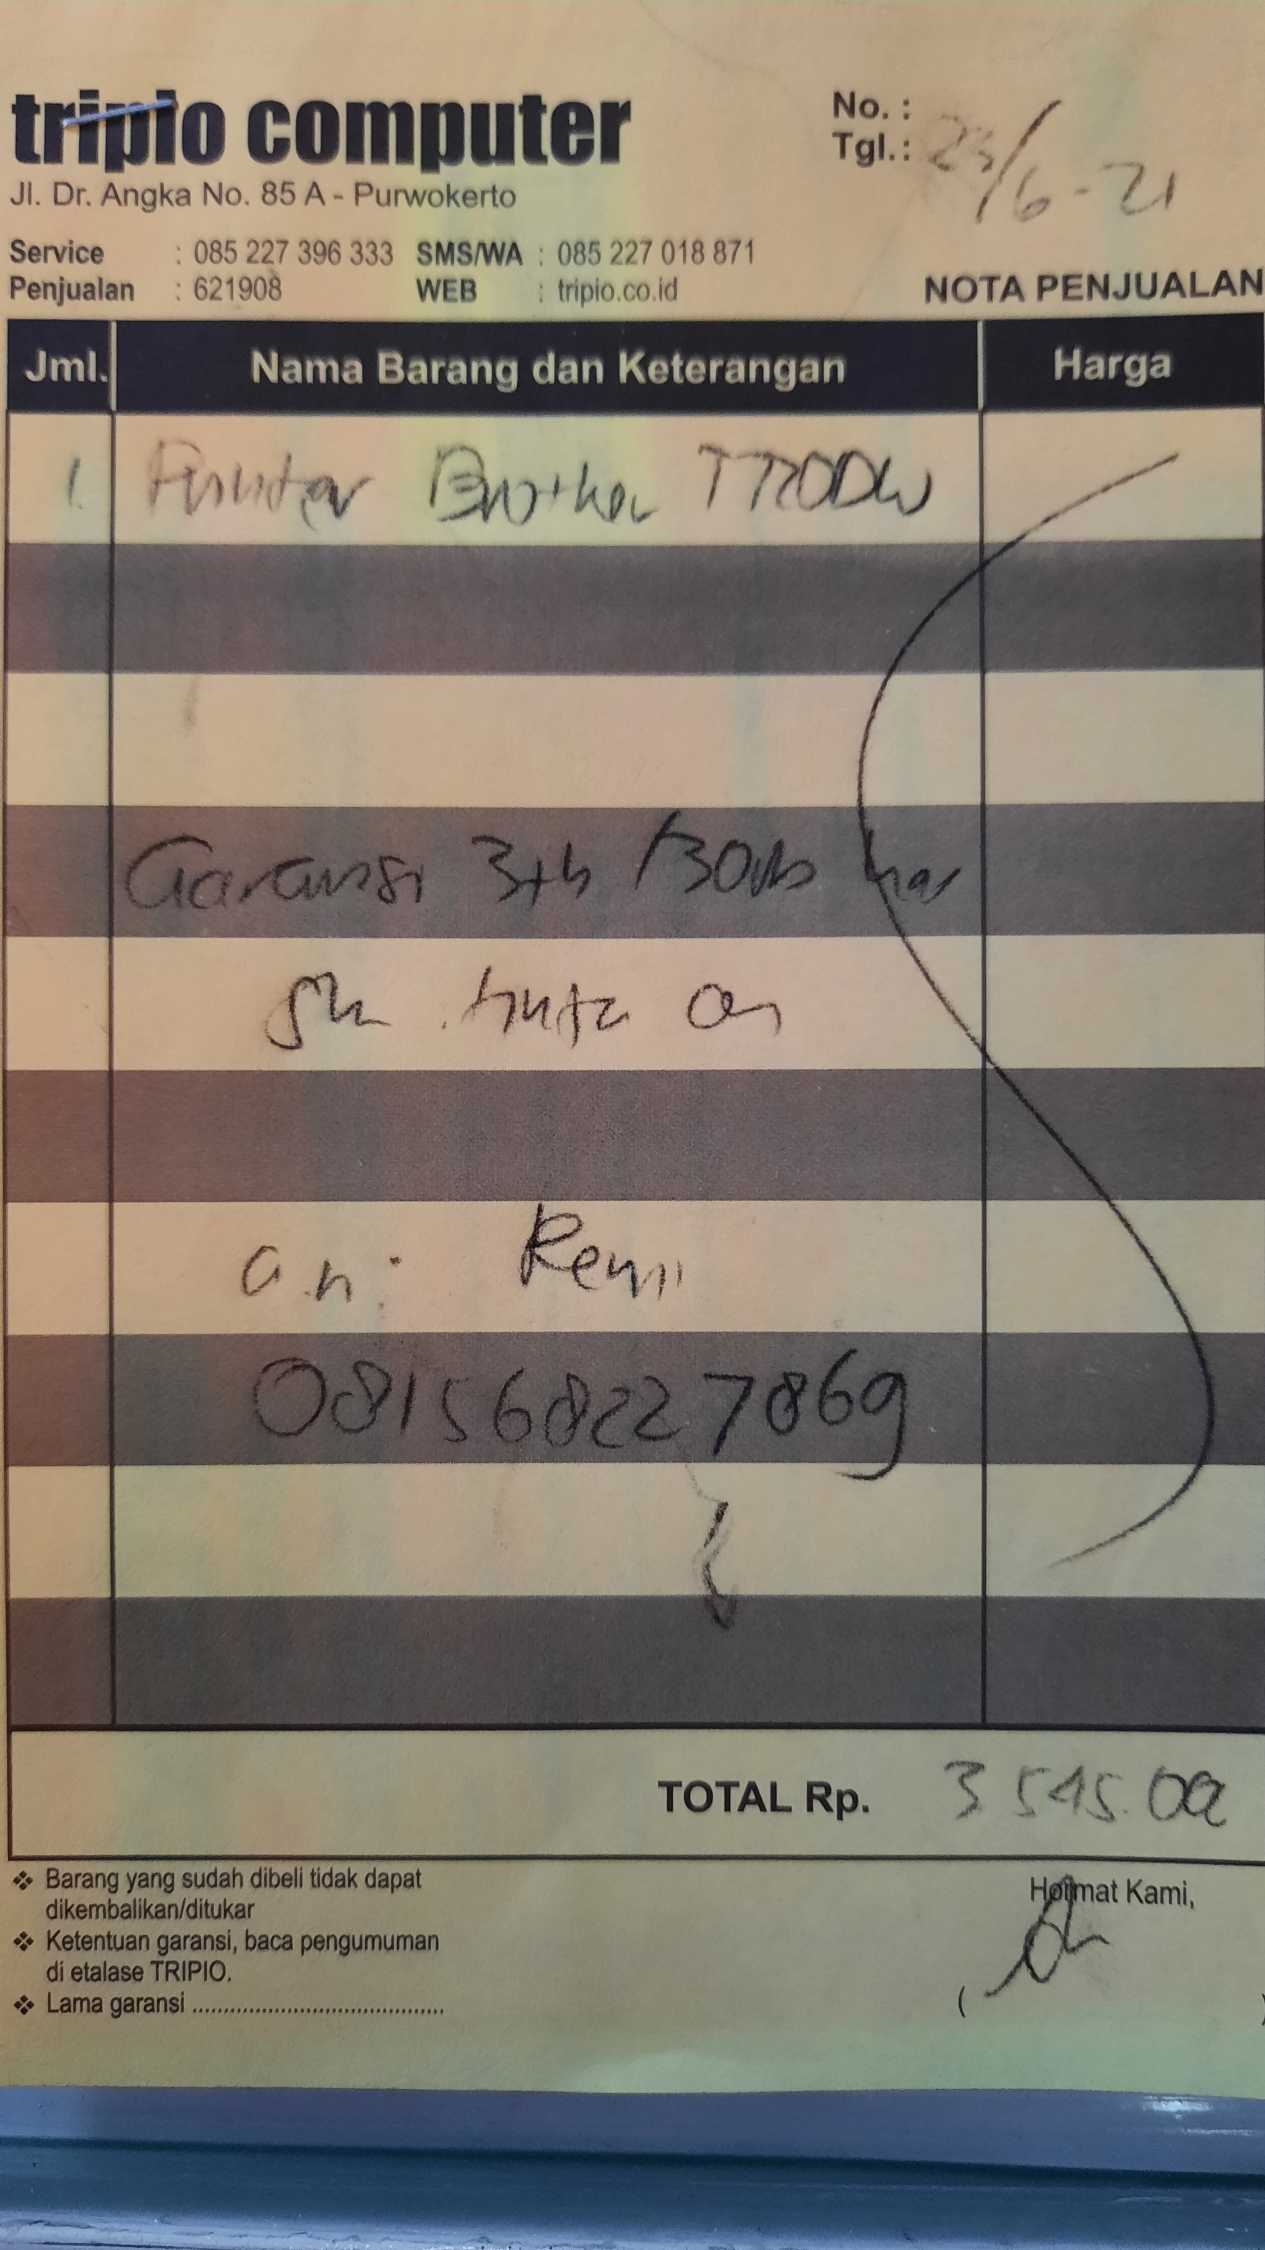 tripio computer
Jl. Dr. Angka No. 85 A - Purwokerto
Service : 085 227 396 333 SMS/WA : 085 227 018 871
Penjualan : 621908 WEB : tripio.co.id
No. :
Tgl.: 23/6-21
NOTA PENJUALAN
Jml. Nama Barang dan Keterangan Harga
1. Printer Brother
Garansi 3th
a.n:
081568227869
TOTAL Rp. 3 545.00
❖ Barang yang sudah dibeli tidak dapat
dikembalikan/ditukar
❖ Ketentuan garansi, baca pengumuman
di etalase TRIPIO.
❖ Lama garansi ........................................
Hormat Kami,
( )